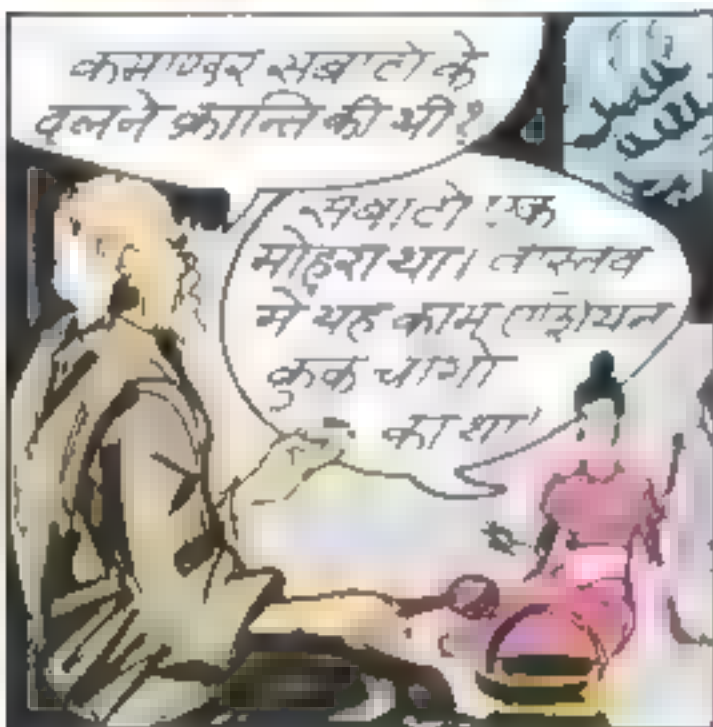 कमाण्डर सबाटो के
दलने क्रान्ति की थी?
सबाटो एक
मोहरा था। वास्तव
में यह काम एशियन
कुक चांगो
का था